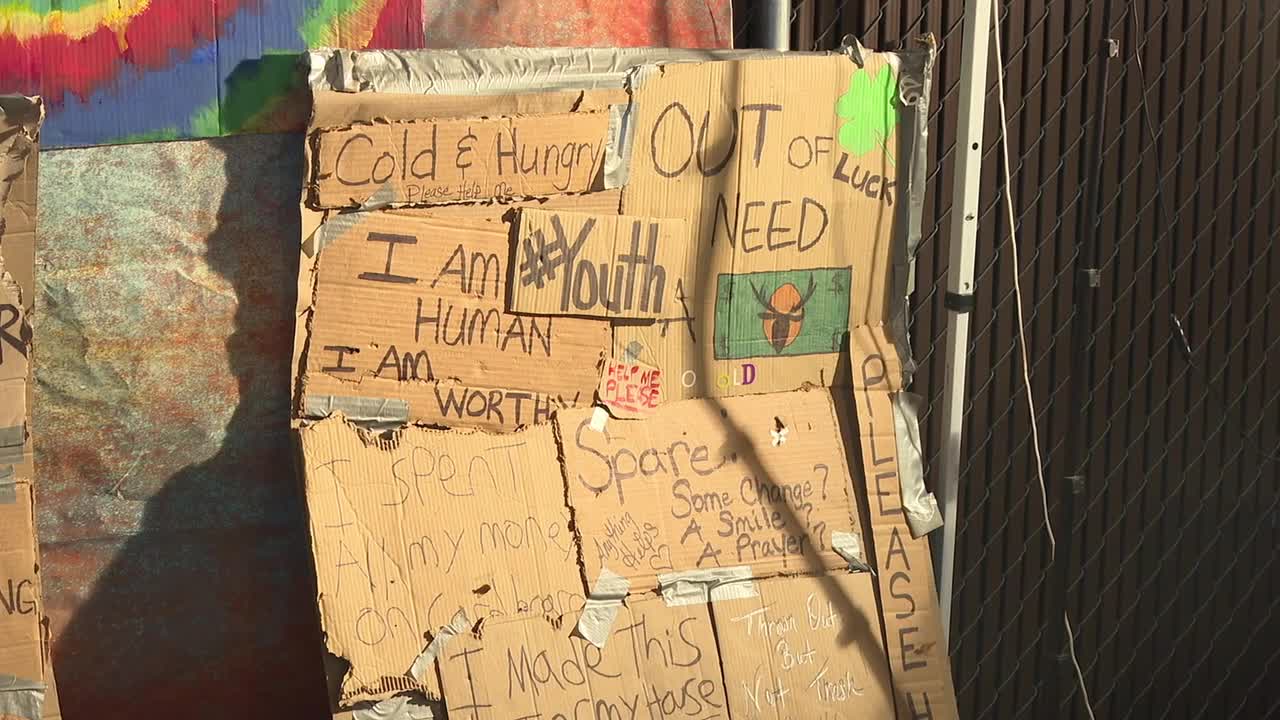 Cold & Hungry
Please Help Me
OUT OF
Luck
NEED
A
I AM
HUMAN
I AM
WORTHY
#Youth
HELP ME
PLEASE
Spare..
Some Change?
A Smile?
A Prayer??
Anything
Helps
I spent
All my money
on
I Made This
my House
Thrown Out
But
Not Trash
PLEASE H
R
NG